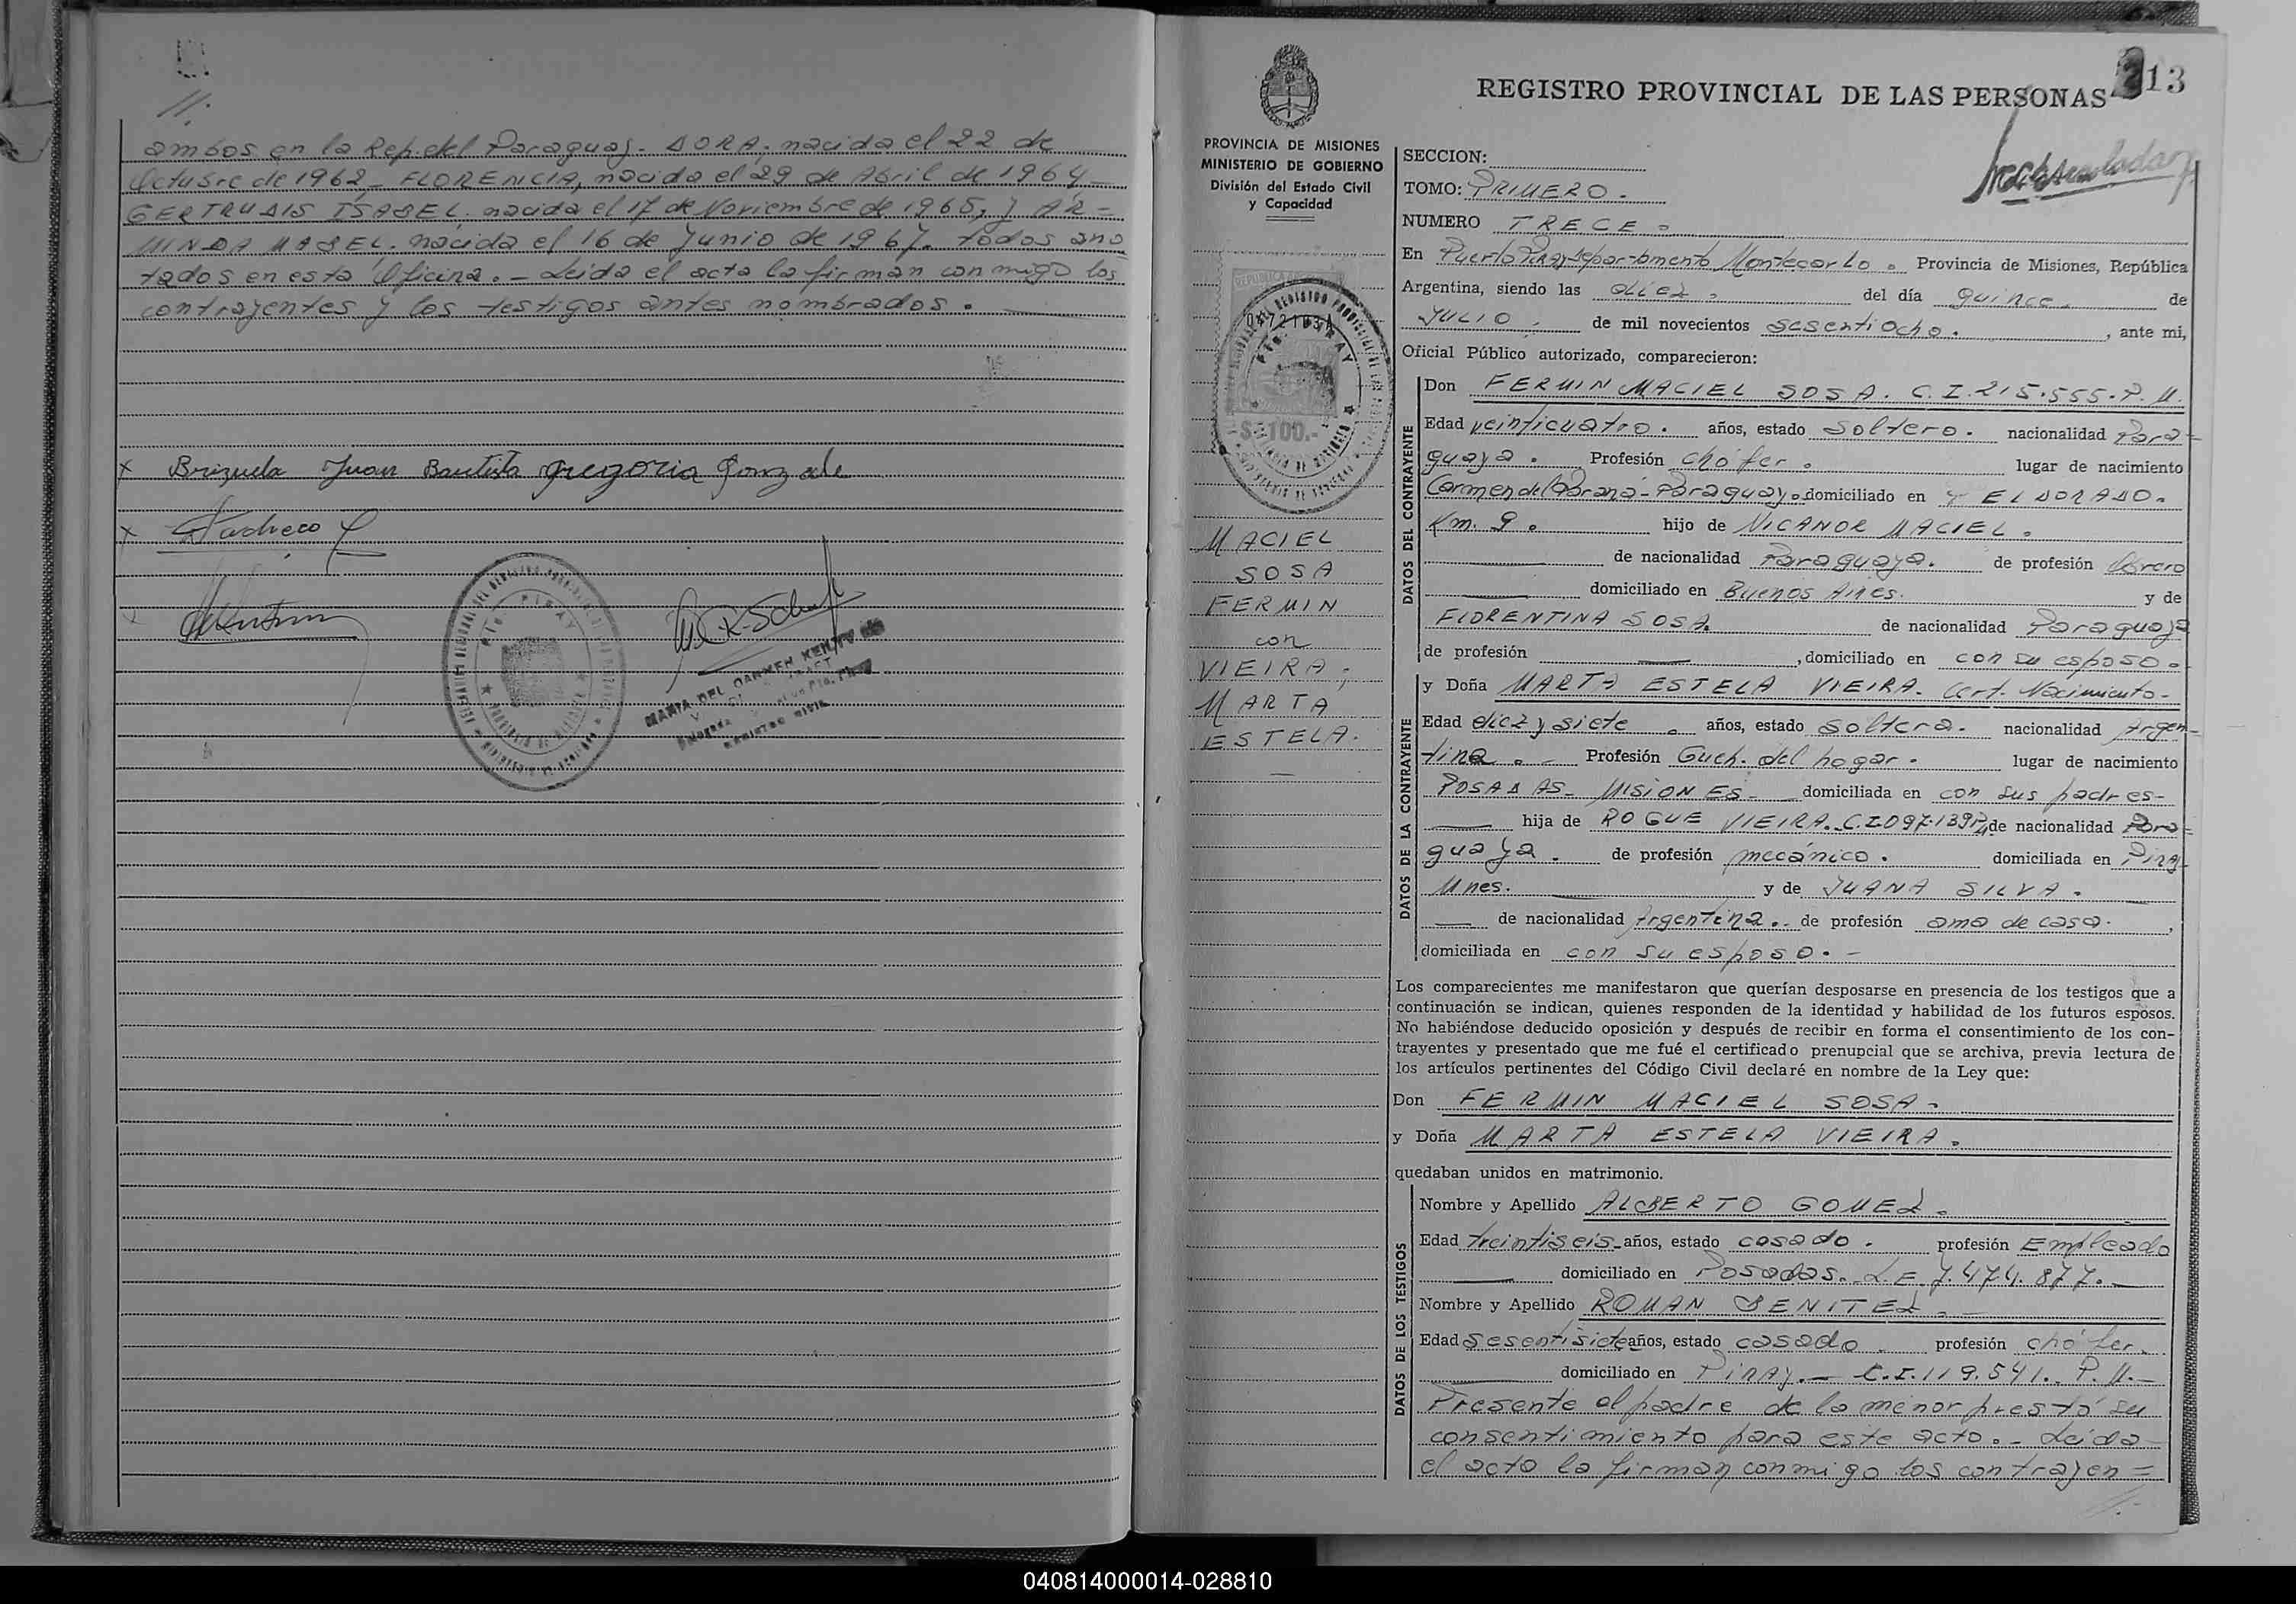 //.
ambos en la Rep. del Paraguay.- DORA, nacida el 22 de
Octubre de 1962.- FLORENCIA, nacida el 29 de Abril de 1964.-
GERTRUDIS ISABEL, nacida el 17 de Noviembre de 1965, y AR=
MINDA MABEL, nacida el 16 de Junio de 1967. todos ano
tados en esta Oficina.- Leida el acta la firman conmigo los
contrayentes y los testigos antes nombrados.
x Brizuela Juan Bautista Gregoria Gonzale
x Pacheco
Pto. PIRAY
MARIA DEL CARMEN
REGISTRO CIVIL
REGISTRO PROVINCIAL DE LAS PERSONAS
13
PROVINCIA DE MISIONES
MINISTERIO DE GOBIERNO
División del Estado Civil
y Capacidad
$ 100.-
Pto. PIRAY
MACIEL
SOSA
FERMIN
con
VIEIRA,
MARTA
ESTELA.
SECCION:
TOMO: PRIMERO.
NUMERO TRECE.
En Puerto Piray departamento Montecarlo. Provincia de Misiones, República
Argentina, siendo las diez. del día quince de
JULIO. de mil novecientos sesentiocho. , ante mi,
Oficial Público autorizado, comparecieron:
DATOS DEL CONTRAYENTE
Don FERMIN MACIEL SOSA. C.I.215.555.P.M.
Edad veinticuatro. años, estado soltero. nacionalidad Para=
guaya. Profesión chófer. lugar de nacimiento
Carmen del Parana-Paraguay. domiciliado en ELDORADO.
Km. 9. hijo de NICANOR MACIEL.
de nacionalidad Paraguaya. de profesión Obrero
domiciliado en Buenos Aires. y de
FLORENTINA SOSA. de nacionalidad Paraguaya
de profesión , domiciliado en con su esposo.
DATOS DE LA CONTRAYENTE
y Doña MARTA ESTELA VIEIRA. Cert. Nacimiento-
Edad diez y siete. años, estado soltera. nacionalidad Argen-
tina. Profesión Queh. del hogar. lugar de nacimiento
POSADAS- MISIONES- domiciliada en con sus padres-
hija de ROGUE VIEIRA. C.I.097.139P, de nacionalidad Para=
guaya. de profesión mecánico. domiciliada en Piray
Mnes. y de JUANA SILVA.
de nacionalidad Argentina. de profesión ama de casa.
domiciliada en con su esposo.-
Los comparecientes me manifestaron que querían desposarse en presencia de los testigos que a
continuación se indican, quienes responden de la identidad y habilidad de los futuros esposos.
No habiéndose deducido oposición y después de recibir en forma el consentimiento de los con-
trayentes y presentado que me fué el certificado prenupcial que se archiva, previa lectura de
los artículos pertinentes del Código Civil declaré en nombre de la Ley que:
Don FERMIN MACIEL SOSA.
y Doña MARTA ESTELA VIEIRA.
quedaban unidos en matrimonio.
DATOS DE LOS TESTIGOS
Nombre y Apellido ALBERTO GOMEZ.
Edad treintiseis- años, estado casado. profesión Empleado
domiciliado en Posadas. L.E. 7.474.877.
Nombre y Apellido ROMAN BENITEZ.
Edad sesentisiete años, estado casado. profesión chófer.
domiciliado en Piray.- C.I.119.541. P.M.-
Presente el padre de la menor prestó su
consentimiento para este acto.- Leida
el acta la firman conmigo los contrayen=
//.
040814000014-028810